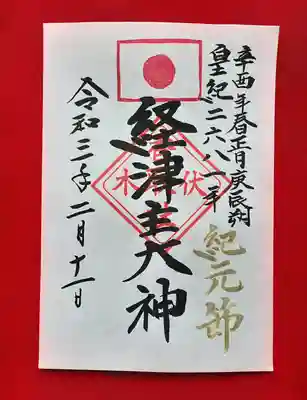 辛酉年春正月庚辰朔
皇紀二六八一年
紀元節
経津主大神
令和三年二月十一日